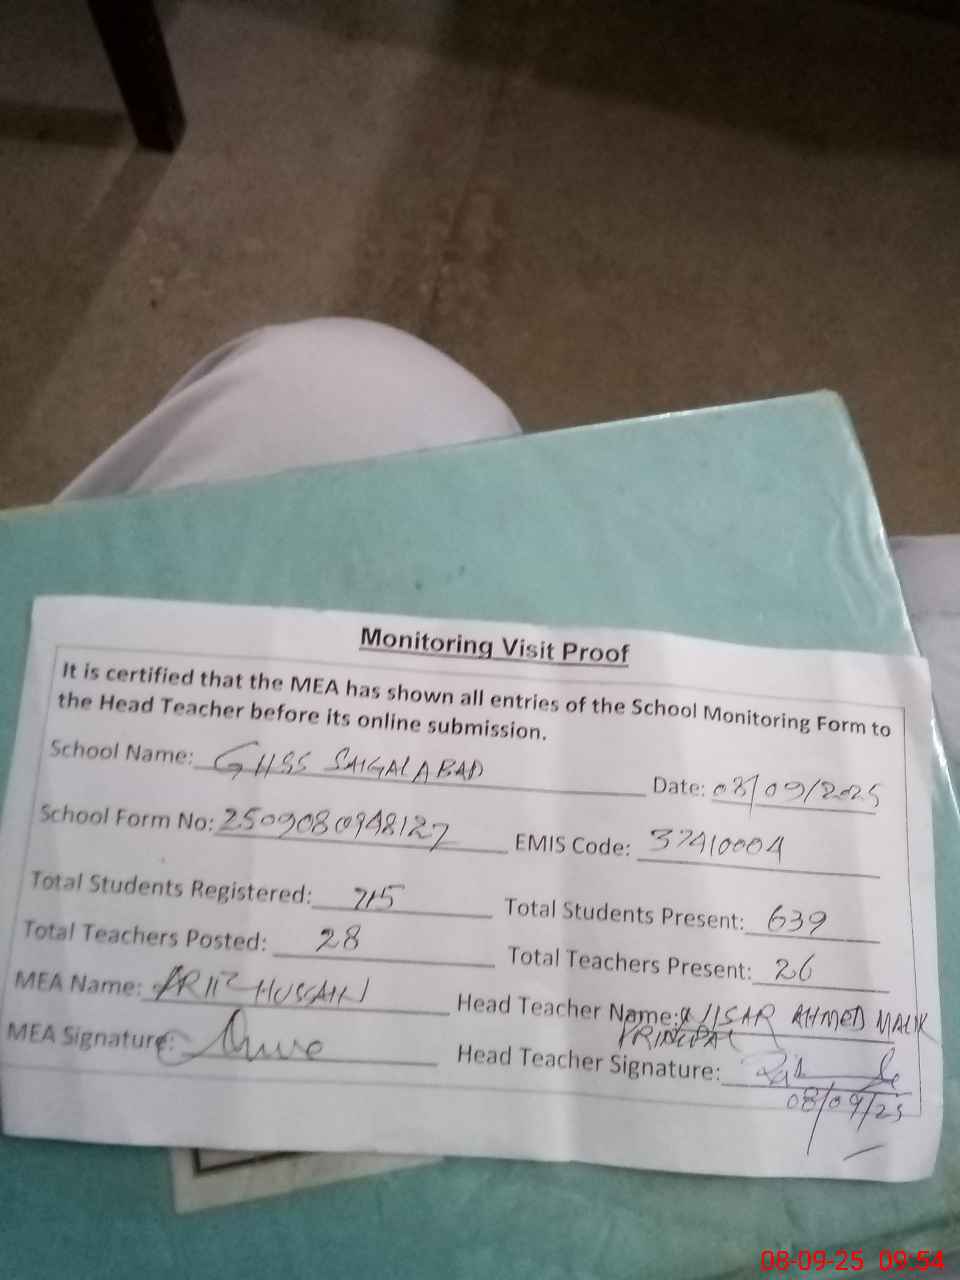 Monitoring Visit Proof
It is certified that the MEA has shown all entries of the School Monitoring Form to
the Head Teacher before its online submission.
School Name: GHSS SAIGALABAD
Date: 08/09/2025
School Form No: 2509080948127
EMIS Code: 37410004
Total Students Registered: 715
Total Students Present: 639
Total Teachers Posted: 28
Total Teachers Present: 26
MEA Name: HUSSAIN
Head Teacher Name: NISAR AHMED MALIK
PRINCIPAL
MEA Signature:
Head Teacher Signature:
08/09/25
08-09-25 09:54